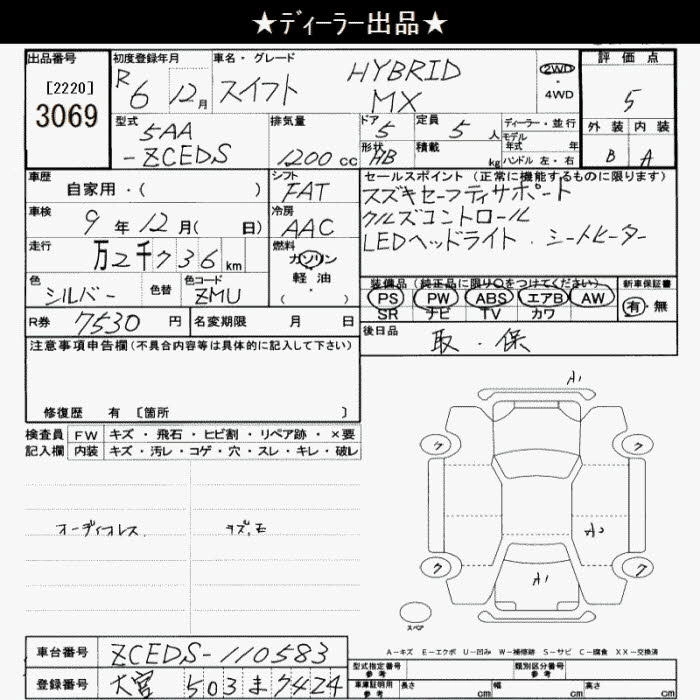 ★ディーラー出品★
出品番号 [2220] 3069
初度登録年月 R6 12月
車名・グレード スイフト HYBRID MX
2WD・4WD
評価点 5
外装 B 内装 A
型式 5AA-ZCEDS
排気量 1200cc
ドア 5
定員 5人
形状 HB
積載 kg
ディーラー・並行
モデル年式 年
ハンドル 左・右
車歴 自家用・( )
シフト FAT
セールスポイント (正常に機能するものに限ります)
スズキセーフティサポート
クルズコントロール
LEDヘッドライト・シートヒーター
車検 9年12月( 日)
冷房 AAC
走行 万2千736km
燃料 ガソリン 軽油 ( )
色 シルバー 色替 色コード ZMU
装備品 (純正品に限り○をつけてください)
PS PW ABS エアB AW
SR ナビ TV カワ
新車保証書 有・無
R券 7530円 名変期限 月 日
後日品 取・保
注意事項申告欄 (不具合内容等は具体的に記入して下さい)
修復歴 有 [箇所 ]
検査員記入欄 FW キズ・飛石・ヒビ割・リペア跡・×要
内装 キズ・汚レ・コゲ・穴・スレ・キレ・破レ
オーディオレス
A1
ワ ワ
A2
A1
ワ ワ
スペア
A-キズ E-エクボ U-凹み W-補修跡 S-サビ C-腐食 XX-交換済
車台番号 ZCEDS-110583
登録番号 大宮 503 ま 7424
型式指定番号 参考 類別区分番号 参考
車庫証明用 参考 長さ cm 幅 cm 高さ cm